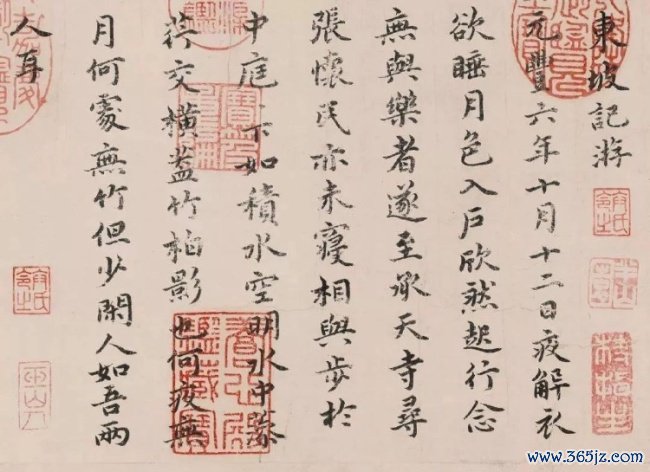 東坡記游
元豐六年十月十二日夜解衣
欲睡月色入戶欣然起行念
無與樂者遂至承天寺尋
張懷民亦未寢相與步於
中庭下如積水空明水中藻
荇交橫蓋竹柏影也何夜無
月何處無竹但少閑人如吾兩
人耳
www.365jz.com